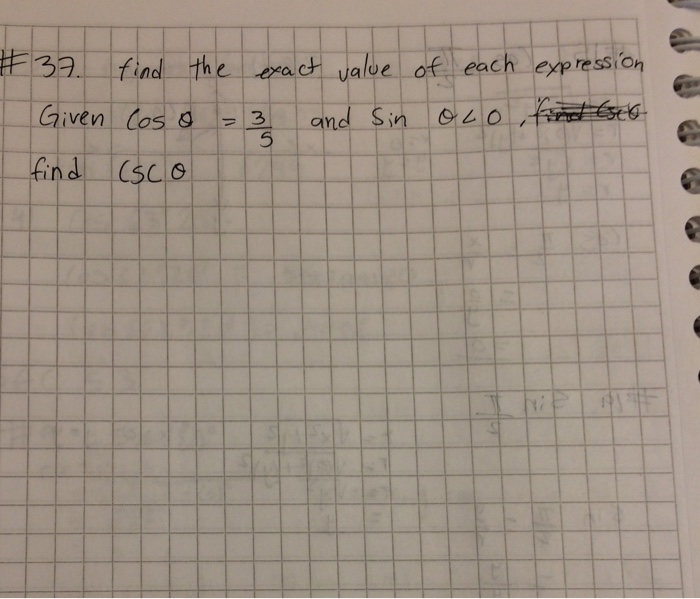 # 37. find the exact value of each expression
Given Cos θ = 3/5 and Sin θ < 0, find Csc θ
find CSC θ